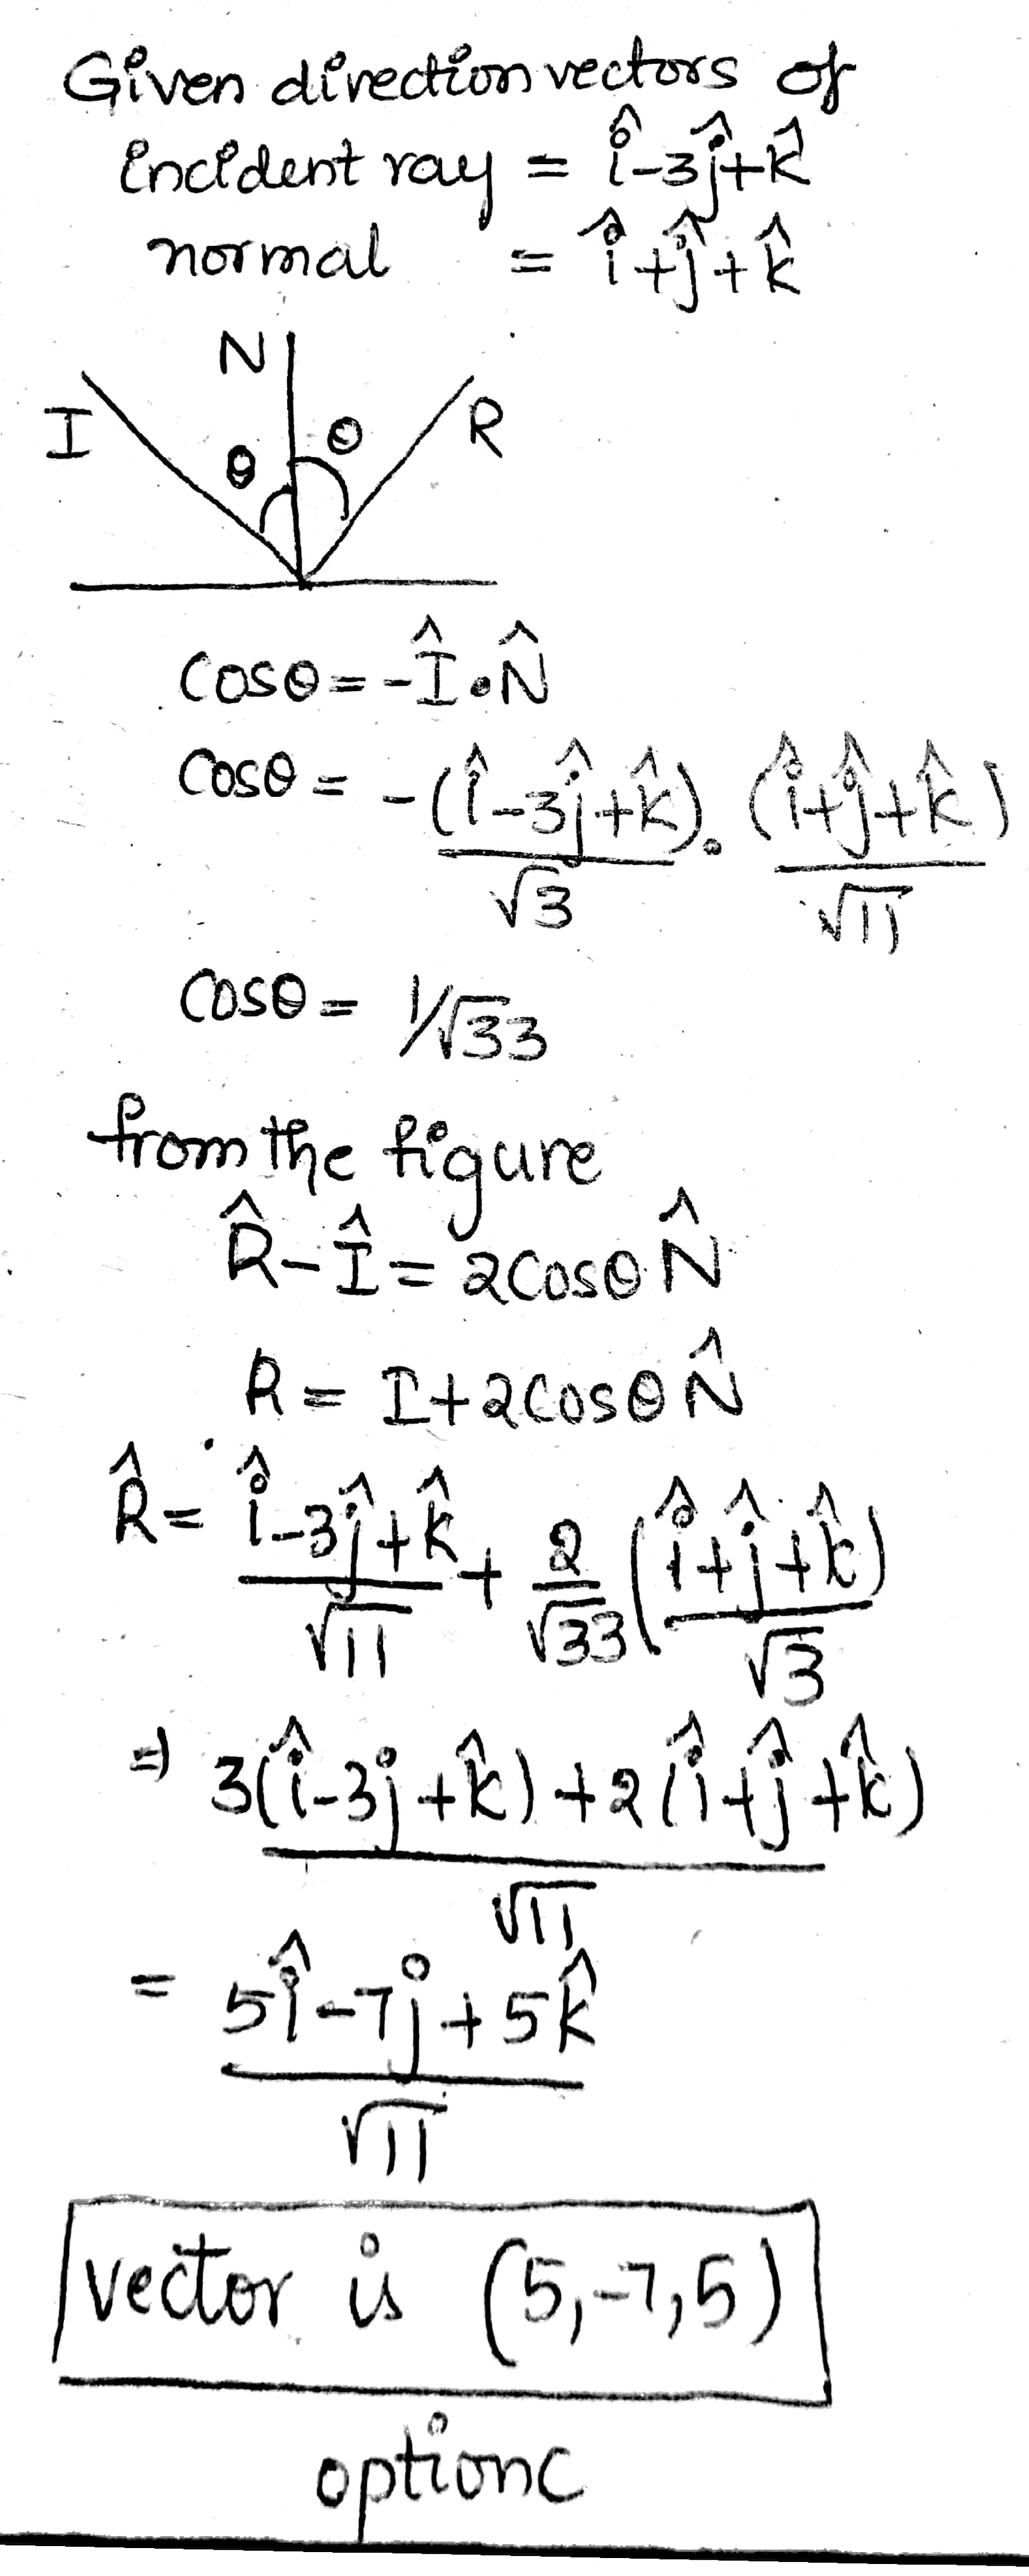 Given direction vectors of
incident ray = î-3ĵ+k̂
normal = î+ĵ+k̂
N
I θ θ R
cosθ = -Î·N̂
cosθ = -(î-3ĵ+k̂)/√3 · (î+ĵ+k̂)/√11
cosθ = 1/√33
from the figure
R̂-Î = 2cosθ N̂
R = I+2cosθ N̂
R̂ = î-3ĵ+k̂/√11 + 2/√33 (î+ĵ+k̂)/√3
⇒ 3(î-3j+k̂)+2(î+ĵ+k̂)/√11
= 5î-7j+5k̂/√11
vector is (5,-7,5)
option c